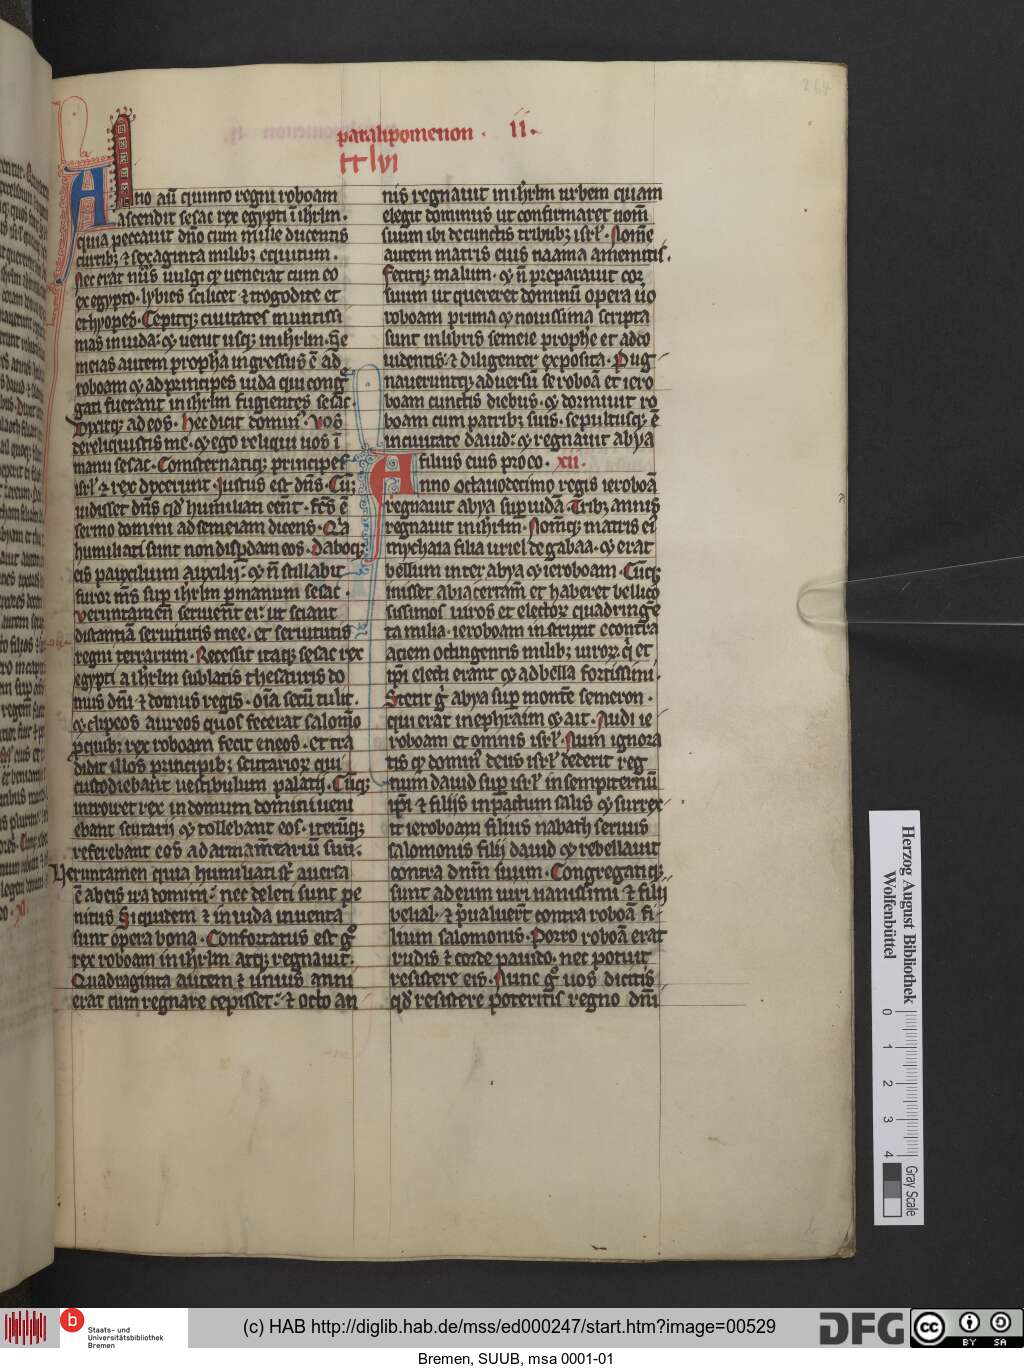 paralipomenon . ii.
Anno aū quinto regni roboam
ascendit sesac rex egypti ī ihrlm .
quia peccauit dn̄o cum mille ducentis
curribꝫ ⁊ sexaginta milibꝫ equitum .
Nec erat nūs uulgi qͥ uenerat cum eo
ex egypto . lybies scilicet ⁊ trogodite et
ethyopes . Cepitqꝫ ciuitates munitissi
mas in iuda : ⁊ uenit usqꝫ in ihrlm . Se
meias autem propha ingressus ē ad
roboam ⁊ ad principes iuda qui congͤ
gati fuerant in ihrlm fugientes sesac .
Dixitqꝫ ad eos . Hec dicit dominꝰ . Vos
dereliquistis me . ⁊ ego reliqui uos ī
manu sesac . Consternatiqꝫ principes
isrl̄ ⁊ rex dixerunt . Iustus est dn̄s . Cūqꝫ
uidisset dn̄s qd̓ humiliati eēnt . fcs̄ ē
sermo domini ad semeiam dicens . Qͥa
humiliati sunt non disꝑdam eos . Daboqꝫ
eis pauxillum auxilij : ⁊ n̄ stillabit
furor ms̄ suꝑ ihrlm ꝑ manum sesac .
Veruntamen̄ seruient ei : ut sciant
distantiā seruitutis mee . et seruitutis
regni terrarum . Recessit itaqꝫ sesac rex
egypti a ihrlm sublatis thesauris do
mus dn̄i ⁊ domus regis . oīa secū tulit .
⁊ clipeos aureos quos fecerat salomō
ꝑ quibꝫ rex roboam fecit eneos . et tra
didit illos principibꝫ scutariorꝫ qui
custodiebant uestibulum palatij . Cūqꝫ
introiret rex in domum domini ueni
ebant scutarij ⁊ tollebant eos . iterūqꝫ
referebant eos ad armamētariū suū .
Veruntamen quia humiliati sͭ auersa
ē ab eis ira domini : nec deleti sunt pe
nitus Siquidem ⁊ in iuda inuenta
sunt opera bona . Confortatus est gͦ
rex roboam in ihrlm atqꝫ regnauit .
Quadraginta autem ⁊ unius anni
erat cum regnare cepisset : ⁊ octo an
nis regnauit in ihrlm urbem quam
elegit dominus ut confirmaret nom̄
suum ibi de cunctis tribubꝫ isrl̄ . Nomē
autem matris eius naama amenitis .
Fecitqꝫ malum . ⁊ n̄ preparauit cor
suum ut quereret dominū opera ūo
roboam prima ⁊ nouissima scripta
sunt in libris semeie prophe et addo
uidentis : ⁊ diligenter exposita . Pug
naueruntqꝫ aduersū se roboā et iero
boam cunctis diebus . ⁊ dormiuit ro
boam cum patribꝫ suis . sepultusqꝫ ē
in ciuitate dauid : ⁊ regnauit abya
filius eius pro eo . xii .
Anno octauodecimo regis ieroboā
regnauit abya suꝑ iudā . Tribꝫ annis
regnauit in ihrlm . Nomqꝫ matris eiꝰ
mychaia filia uriel de gabaa . ⁊ erat
bellum inter abya ⁊ ieroboam . Cūqꝫ
inisset abia certam̄ et haberet bellico
sissimos uiros et electorꝫ quadringē
ta milia . ieroboam instruxit econtra
aciem octingentis milibꝫ uirorꝫ . qͥ et
ip̄i electi erant ⁊ ad bella fortissimi .
Stetit gͦ abya suꝑ montē semeron .
qui erat in ephraim ⁊ ait . Audi ie
roboam et omnis isrl̄ . Num ignora
tis qͥ dominꝰ deus isrl̄ dederit reg
num dauid suꝑ isrl̄ in sempiternū
ip̄i ⁊ filiis in pactum salis ⁊ surrex
it ieroboam filius nabath seruus
salomonis filij dauid ⁊ rebellauit
contra dnm suum . Congregatiqꝫ
sunt ad eum uiri uanissimi ⁊ filij
belial . ⁊ p̄ualuer̄t contra roboā fi
lium salomonis . Porro roboā erat
rudis ⁊ corde pauido . nec potuit
resistere eis . Nunc gͦ uos dicitis
qd̓ resistere poteritis regno dn̄i
264
Herzog August Bibliothek
Wolfenbüttel
0 1 2 3 4
Gray Scale
b Staats- und
Universitätsbibliothek
Bremen
(c) HAB http://diglib.hab.de/mss/ed000247/start.htm?image=00529
DFG
cc BY SA
Bremen, SUUB, msa 0001-01